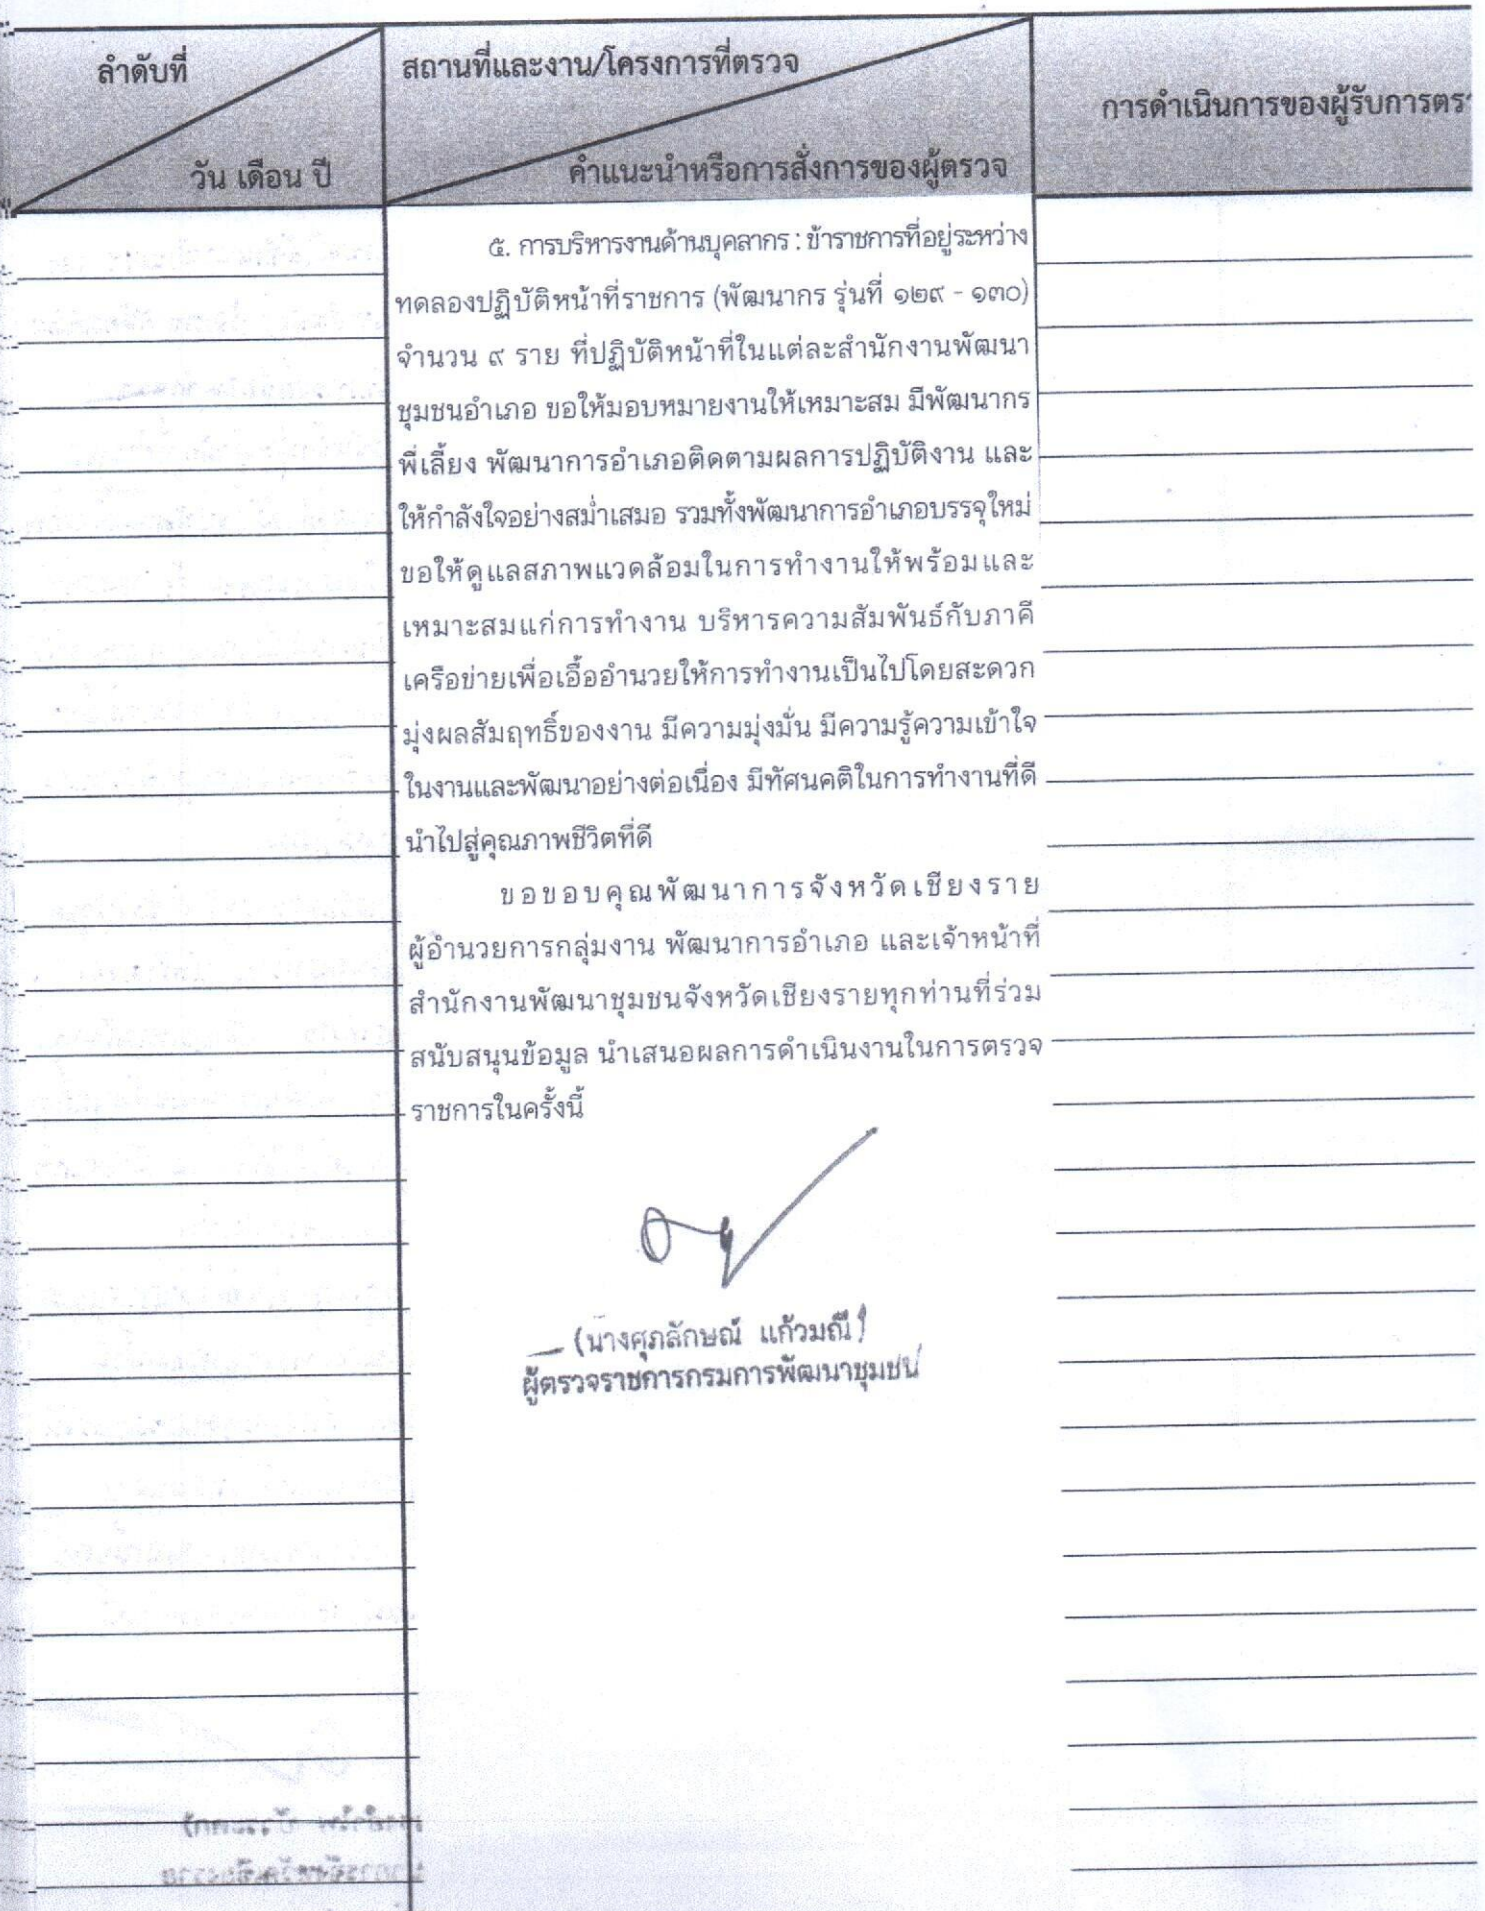 ลำดับที่
วัน เดือน ปี
สถานที่และงาน/โครงการที่ตรวจ
คำแนะนำหรือการสั่งการของผู้ตรวจ
การดำเนินการของผู้รับการตร
๕. การบริหารงานด้านบุคลากร : ข้าราชการที่อยู่ระหว่าง
ทดลองปฏิบัติหน้าที่ราชการ (พัฒนากร รุ่นที่ ๑๒๙ - ๑๓๐)
จำนวน ๙ ราย ที่ปฏิบัติหน้าที่ในแต่ละสำนักงานพัฒนา
ชุมชนอำเภอ ขอให้มอบหมายงานให้เหมาะสม มีพัฒนากร
พี่เลี้ยง พัฒนาการอำเภอติดตามผลการปฏิบัติงาน และ
ให้กำลังใจอย่างสม่ำเสมอ รวมทั้งพัฒนาการอำเภอบรรจุใหม่
ขอให้ดูแลสภาพแวดล้อมในการทำงานให้พร้อมและ
เหมาะสมแก่การทำงาน บริหารความสัมพันธ์กับภาคี
เครือข่ายเพื่อเอื้ออำนวยให้การทำงานเป็นไปโดยสะดวก
มุ่งผลสัมฤทธิ์ของงาน มีความมุ่งมั่น มีความรู้ความเข้าใจ
ในงานและพัฒนาอย่างต่อเนื่อง มีทัศนคติในการทำงานที่ดี
นำไปสู่คุณภาพชีวิตที่ดี
ขอขอบคุณพัฒนาการจังหวัดเชียงราย
ผู้อำนวยการกลุ่มงาน พัฒนาการอำเภอ และเจ้าหน้าที่
สำนักงานพัฒนาชุมชนจังหวัดเชียงรายทุกท่านที่ร่วม
สนับสนุนข้อมูล นำเสนอผลการดำเนินงานในการตรวจ
ราชการในครั้งนี้
(นางศุภลักษณ์ แก้วมณี)
ผู้ตรวจราชการกรมการพัฒนาชุมชน